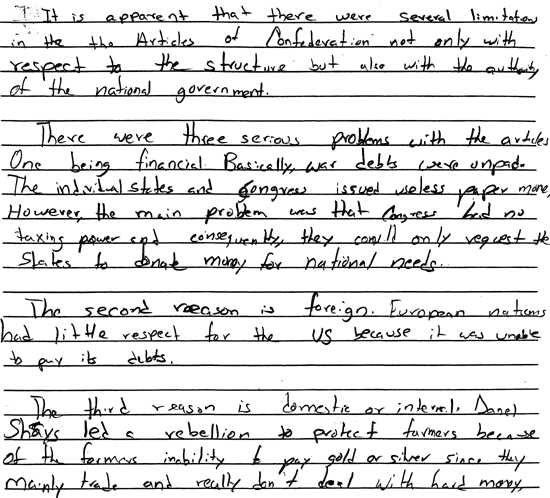 It is apparent that there were several limitations
in the the Articles of Confederation not only with
respect to the structure but also with the authority
of the national government.
There were three serious problems with the articles
One being financial. Basically, war debts were unpad.
The individual states and Congress issued useless paper money,
However, the main problem was that Congress had no
taxing power and consequently, they could only request the
States to donate money for national needs.
The second reason is foreign. European nations
had little respect for the US because it was unable
to pay its debts.
The third reason is domestic or internal. Danel
Shays led a rebellion to protect farmers because
of the farmers inability to pay gold or silver since they
mainly trade and really don't deal with hard money.